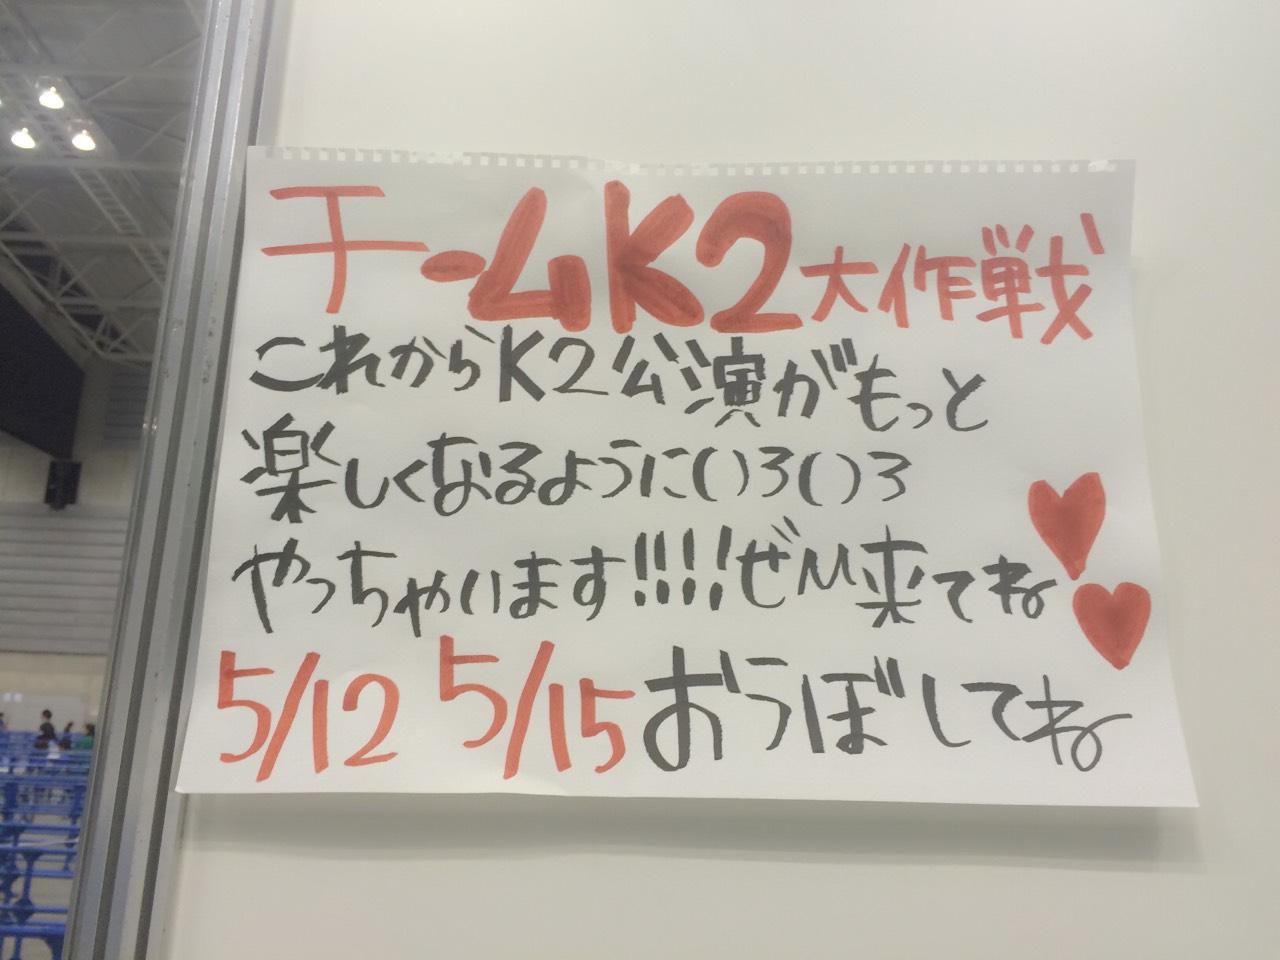 チームK2大作戦
これからK2公演がもっと
楽しくなるようにいろいろ
やっちゃいます!!!!ぜひ来てね
5/12 5/15おうぼしてね